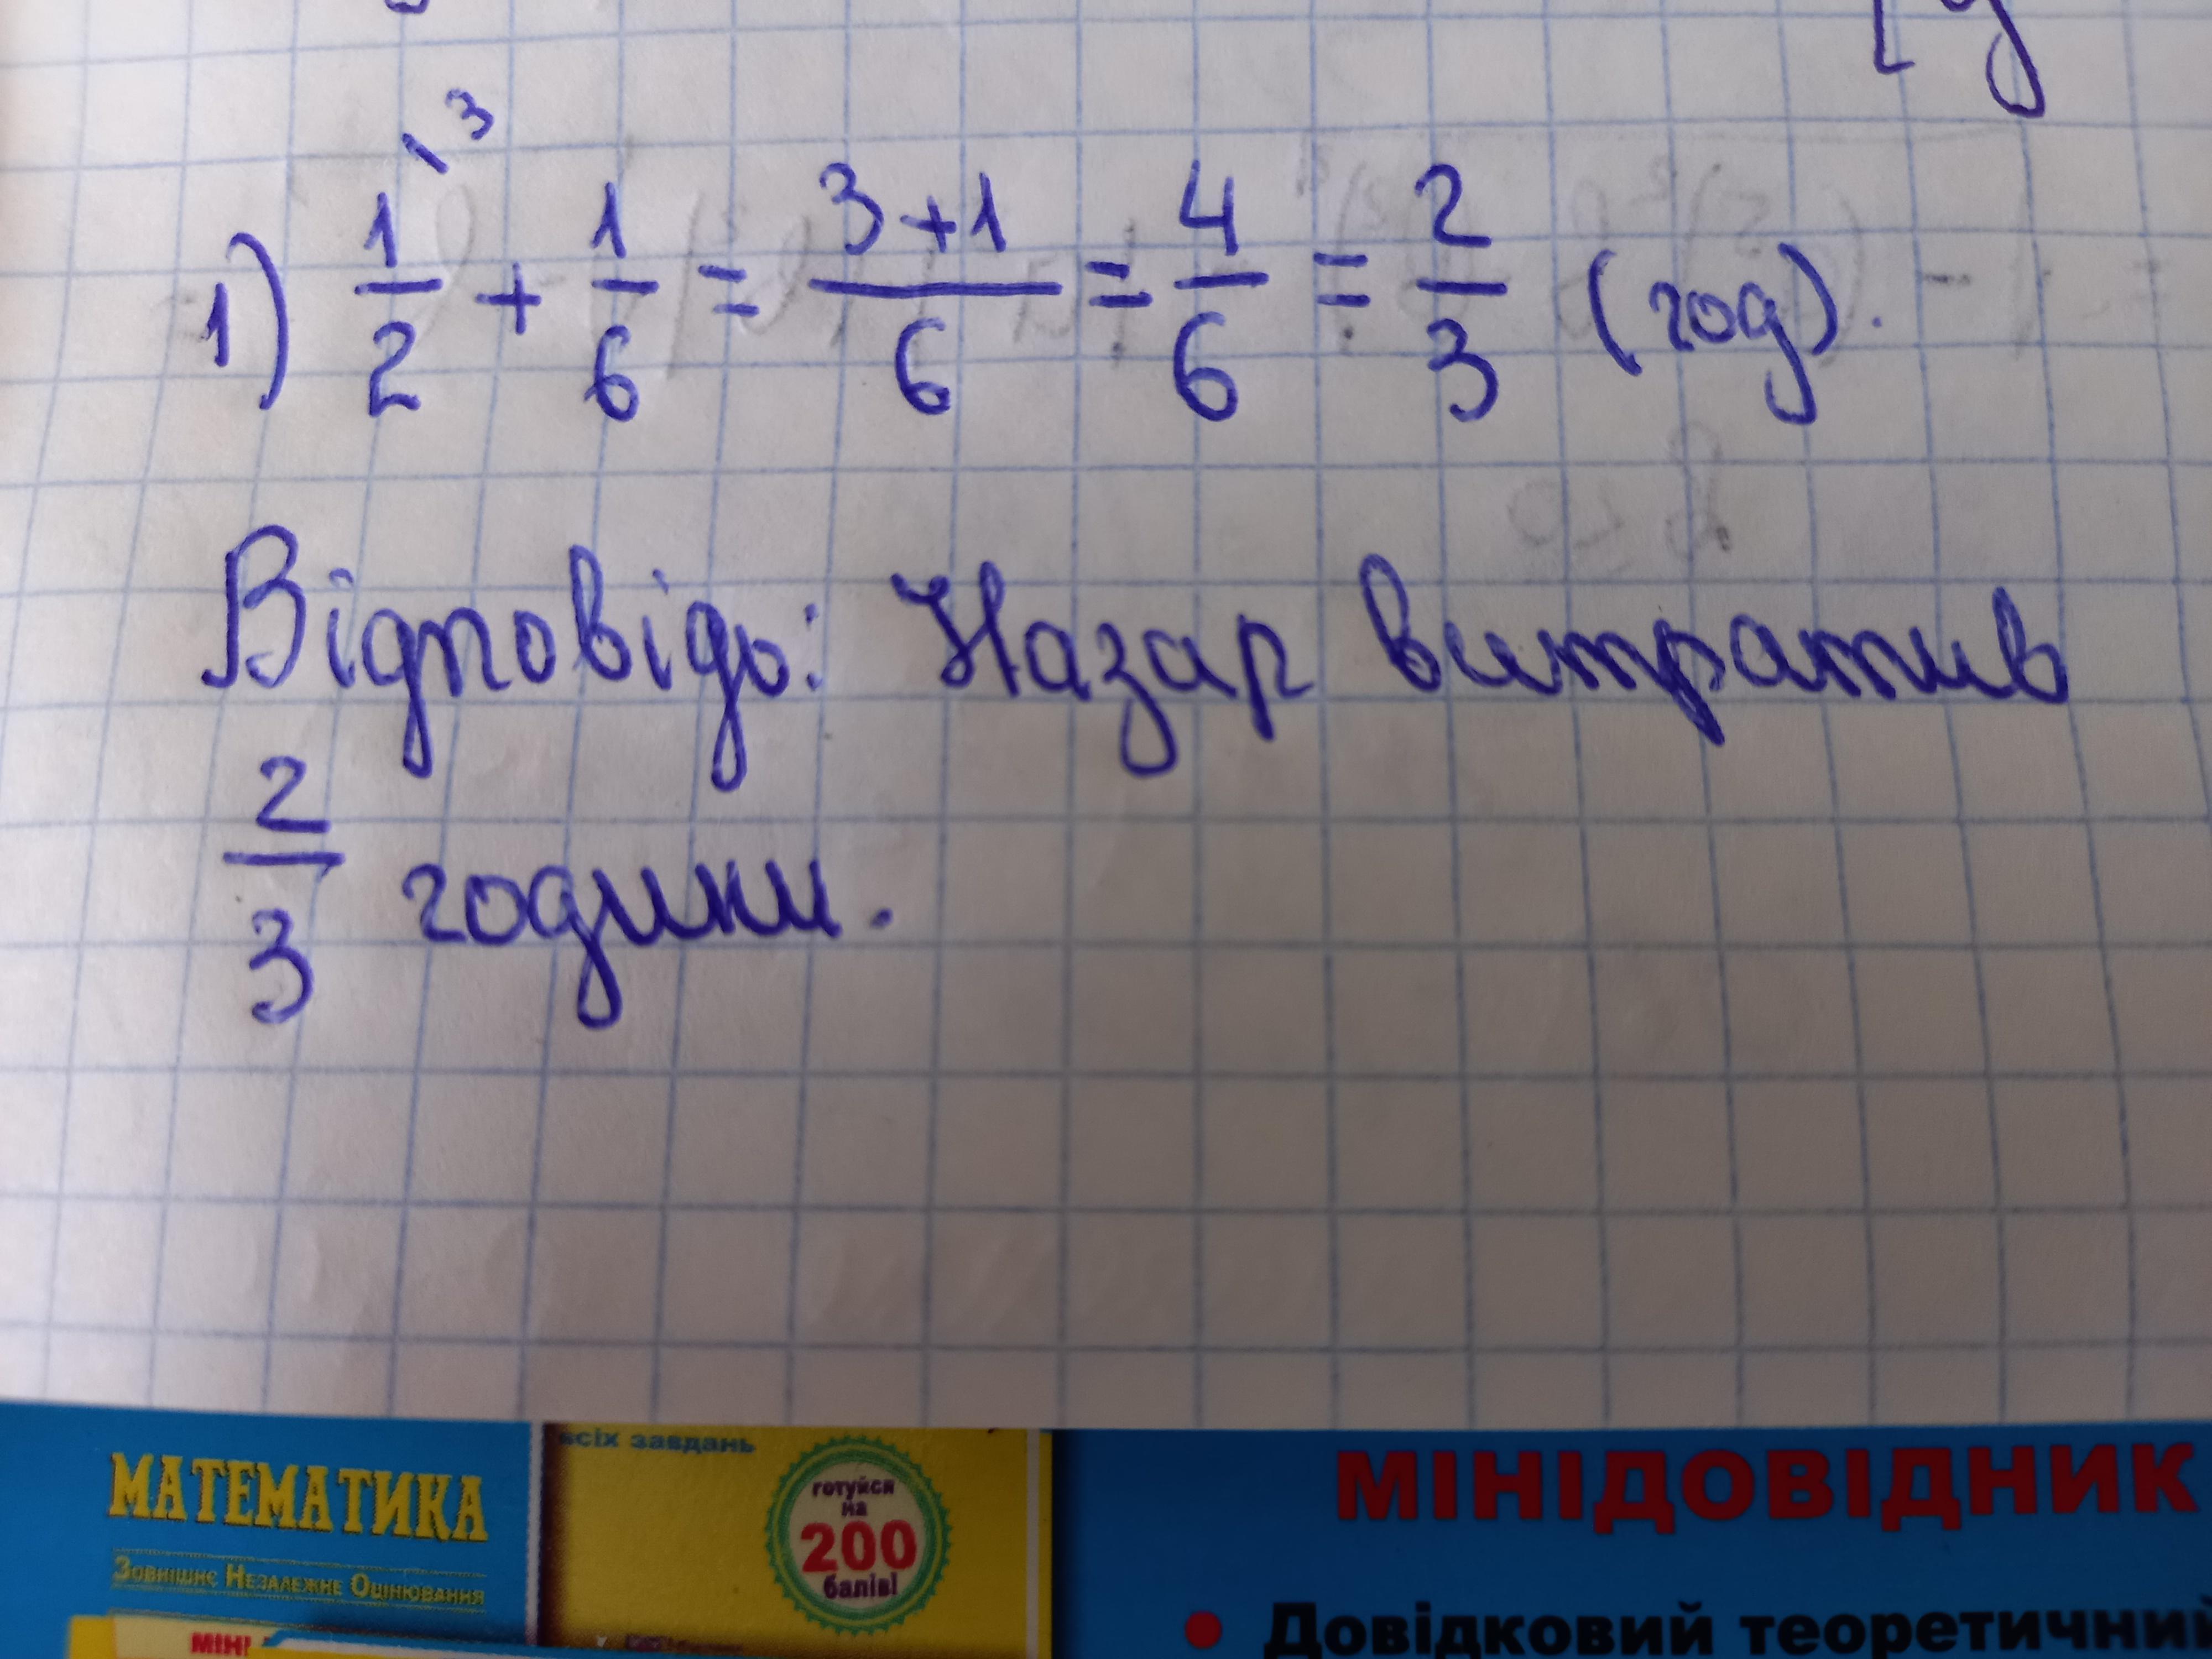 1) 1/2 \3 + 1/6 = 3+1/6 = 4/6 = 2/3 (год).
Відповідь: Назар витратив
2/3 години.
МАТЕМАТИКА
Зовнішнє Незалежне Оцінювання
МІНІ
всіх завдань
готуйся
на
200
балів!
МІНІДОВІДНИК
• Довідковий теоретичний